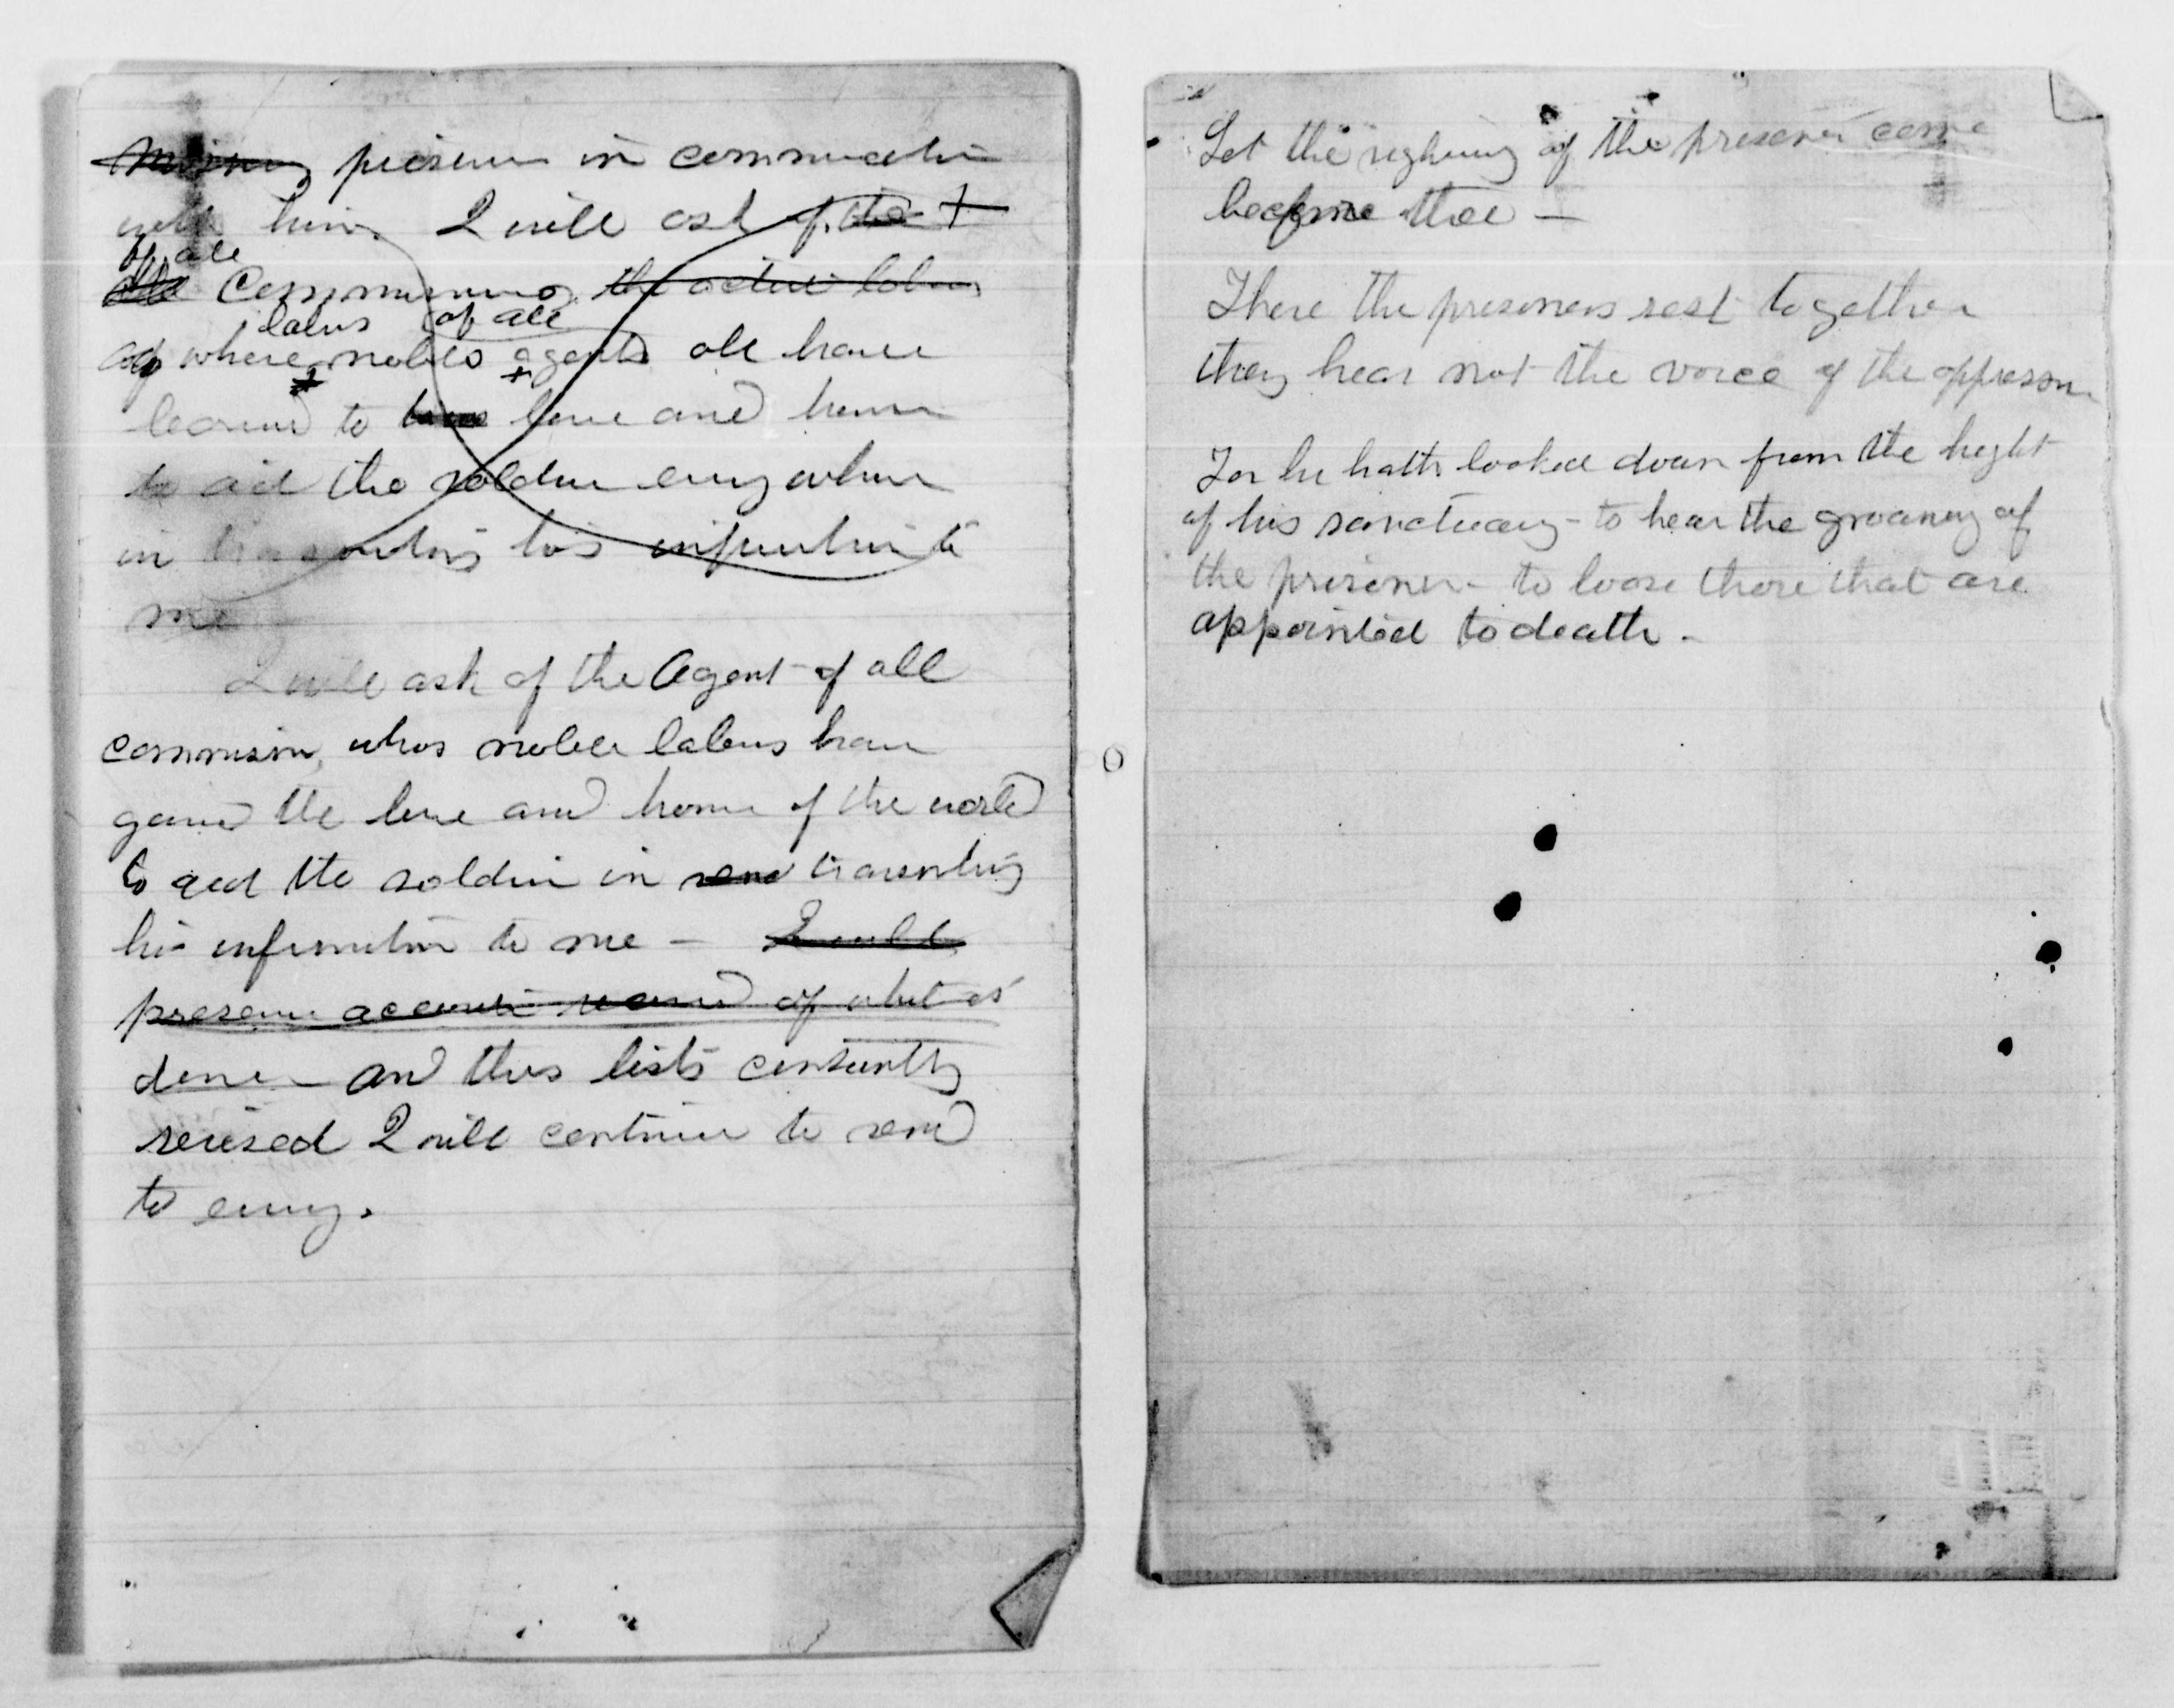 Missing prisoner in communication
with him. I will ask of the +
of all
all Commissions, the active labors
of whose nobles agents all have
labors of all
learned to love and honor
to aid the soldier every where
in transmitting his information to
me
I will ask of the Agent of all
commission, whos noble labors have
gained the love and honor of the world
to aid the soldier in send transmitting
his information to me - I will
preserve accurate record of what is
done - and thus lists constantly
revised I will continue to send
to every.
Let the sighing of the prisoner come
before thee -
There the prisoners rest together
they hear not the voice of the oppressor
For he hath looked down from the hight
of his sanctuary - to hear the groaning of
the prisoner - to loose those that are
appointed to death -